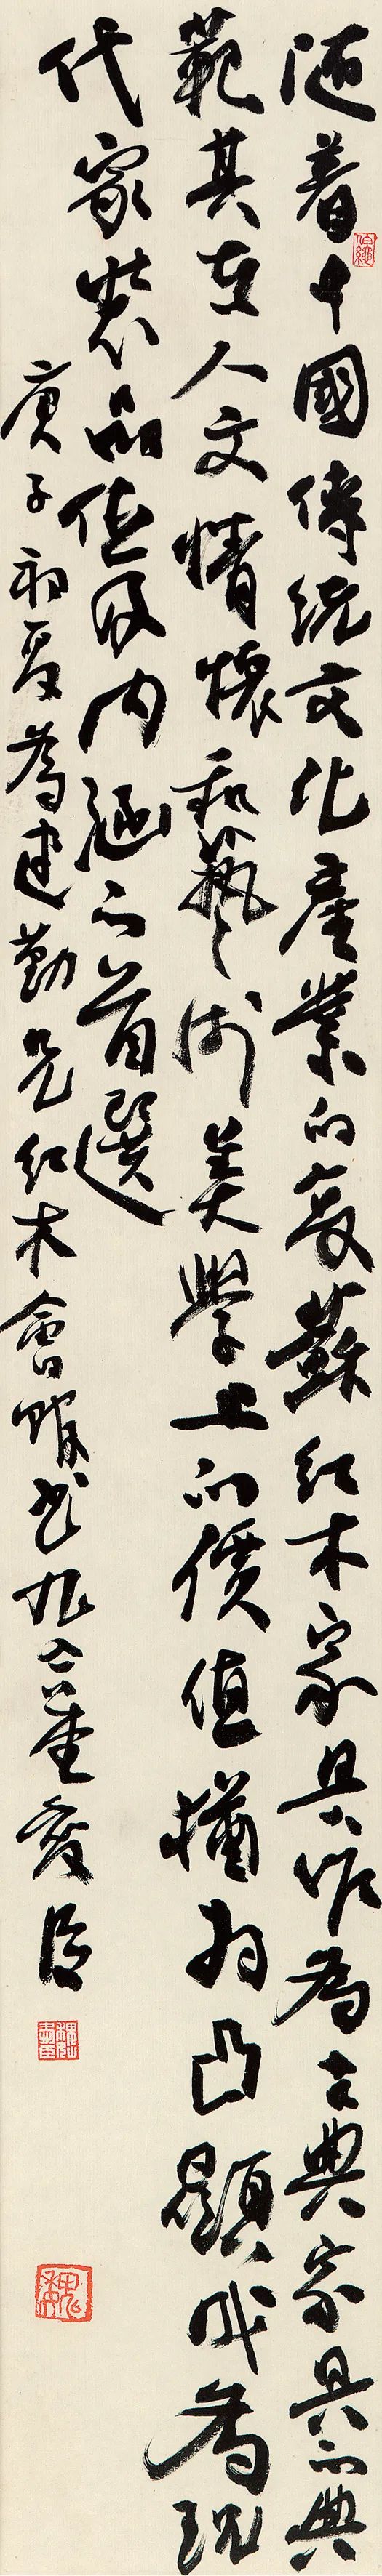 随着中國傳統文化產業的复蘇紅木家具作為古典家具的典
範其在人文情懷和藝術美學上的價值猶為凸顯成為現
代家裝品位及内涵之首選
庚子初夏為建勤兄紅木會館書
魏